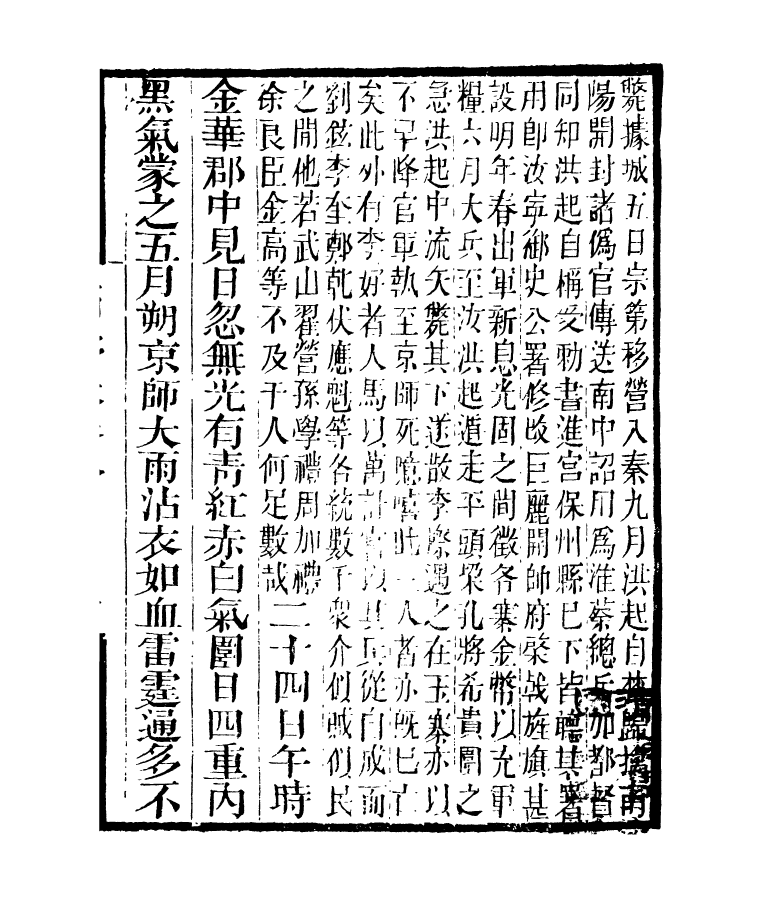 斃據城五日宗第移營入秦九月洪起自
陽開封諸偽官傳送南中詔用為淮蔡總兵加都督
同知洪起自稱受勅書進宮保州縣已下皆聽其署
用卽汝寧御史公署修改巨麗開帥府棨戟旌旗甚
設明年春出軍新息光固之間徵各寨金幣以充軍
糧六月大兵至汝洪起遁走平頭垛孔將希貴圍之
急洪起中流矢斃其下送故李際遇之在玉寨亦以
不早降官軍執至京師死噫嘻此人者亦旣已亡
矣此外有李好者人馬以萬計嘗以其兵從自成而
劉鉉李奎鄭乾伏應魁等各統數千衆介們賊們民
之間他若武山翟營孫學禮周加禮
徐良臣金高等不及千人何足數哉二十四日午時
金華郡中見日忽無光有靑紅赤白氣圍日四重內
黑氣蒙之五月朔京師大雨沾衣如血雷霆逼多不